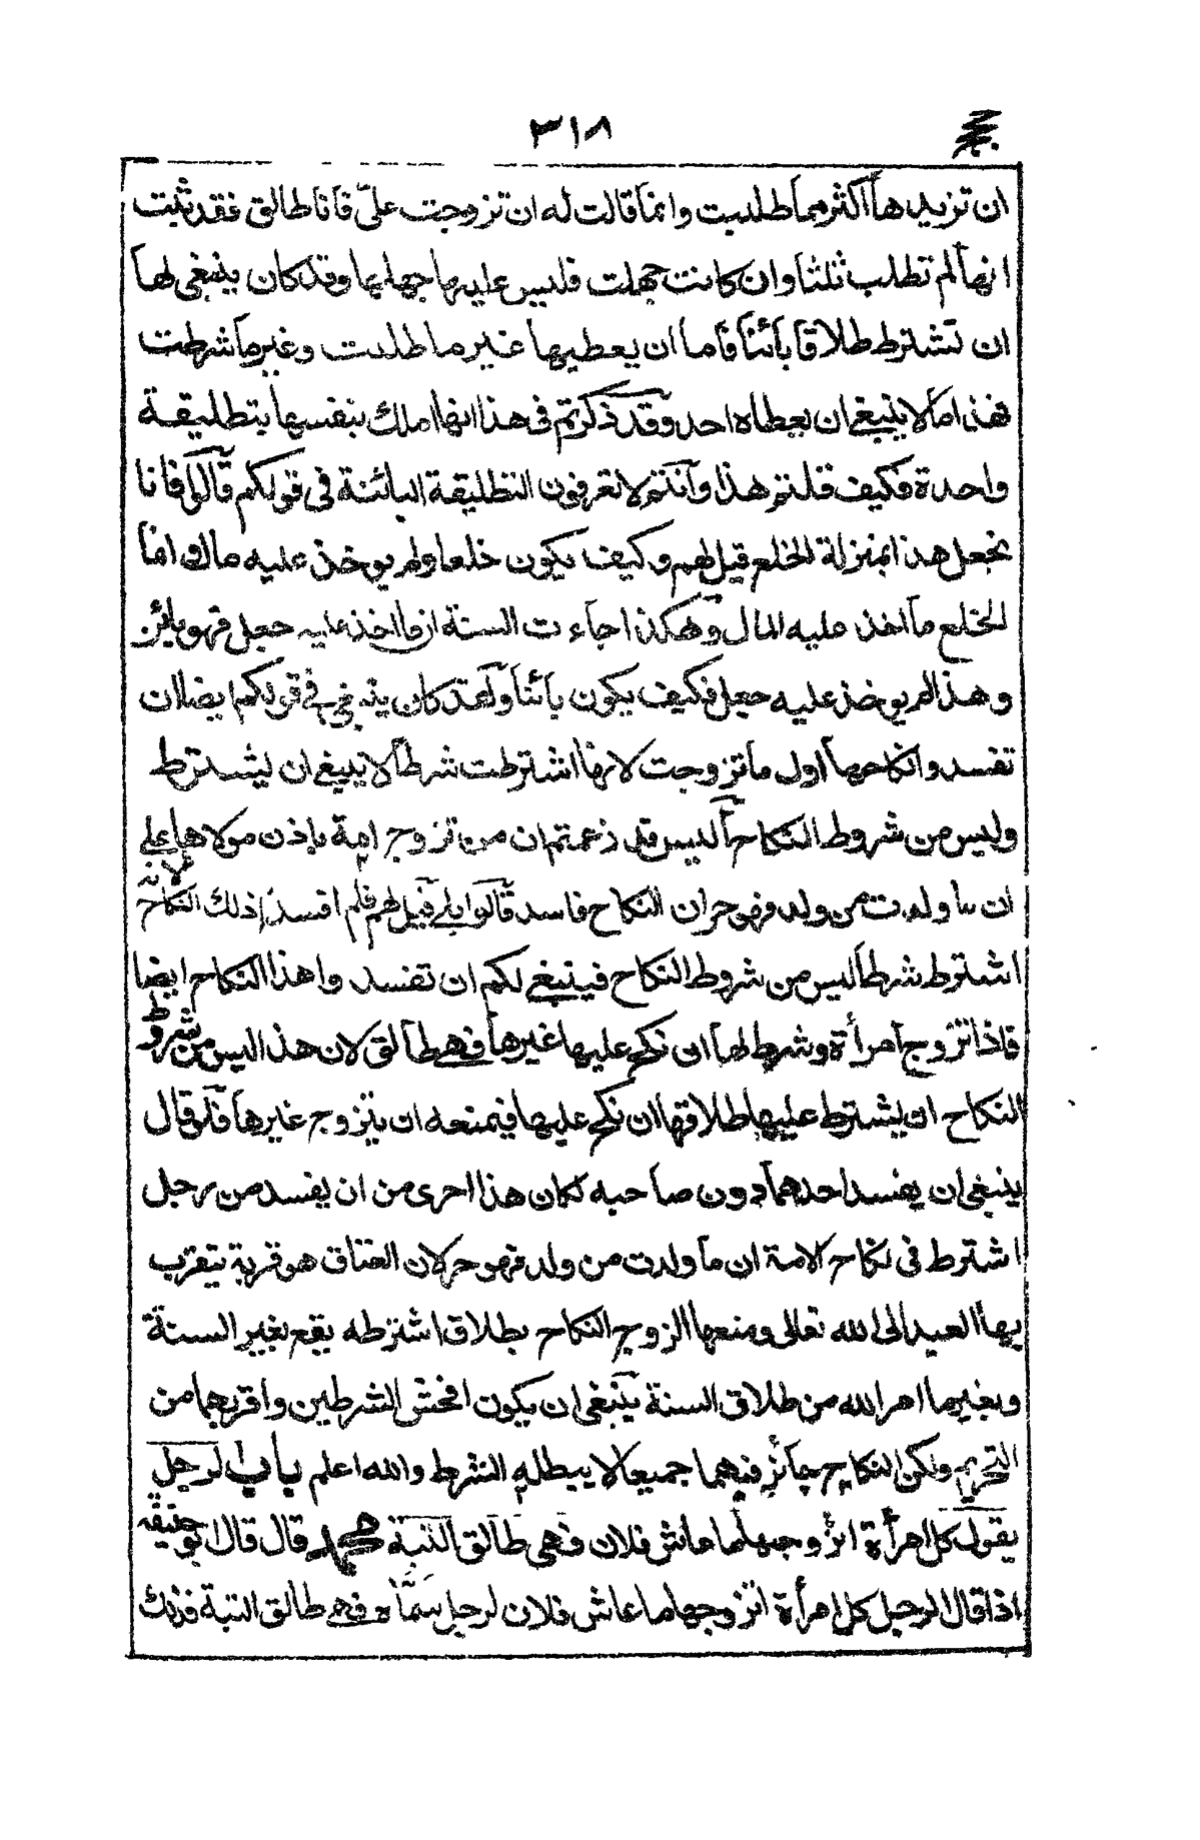 ٣١٨
ان تزيدها اكثر مما طلبت وانما قالت له ان تزوجت علىّ فانا طالق فقد ثبت
انها لم تطلب ثلثا وان كانت جهلت فليس عليها جهلها وقد كان ينبغي لها
ان تشترط طلاقا بائنا فاما ان يعطيها غير ما طلبت وغير ما شرطت
فهذا مالا ينبغي ان يعطاه احد وقد ذكرتم في هذا انها املك بنفسها بتطليقة
واحدة فكيف قلتم هذا وانتم لا تعرفون التطليقة البائنة في قولكم قالوا فانا
نجعل هذا بمنزلة الخلع قيل لهم وكيف يكون خلعا ولم يوخذ عليه مال انما
الخلع ما اخذ عليه المال وهكذا جاءت السنة ان ما اخذ عليه جعل فهو بائن
وهذا لم يوخذ عليه جعل فكيف يكون بائنا ولقد كان ينبغي في قولكم ايضا ان
تفسدوا نكاحها اول ما تزوجت لانها اشترطت شرطا لا ينبغي ان يشترط
وليس من شروط النكاح اليس قد زعمتم ان من تزوج امة باذن مولاها على
ان ما ولدت من ولد فهو حر ان النكاح فاسد قالوا بلى قيل لهم فلم افسد ذلك النكاح لانه
اشترط شرطا ليس من شروط النكاح فينبغي لكم ان تفسدوا هذا النكاح ايضا
فاذا تزوج امرأة وشرط لها ان نكح عليها غيرها فهي طالق لان هذا ليس من شروط
النكاح ان يشترط عليها طلاقها ان نكح عليها فيمنعه ان يتزوج غيرها فلو قال
ينبغي ان يفسد احدهما دون صاحبه لكان هذا احرى من ان يفسد من رجل
اشترط في نكاح الامة ان ما ولدت من ولد فهو حر لان العتاق هو قربة يتقرب
بها العبد الى الله تعالى ومنعها الزوج النكاح بطلاق اشترطه يقع بغير السنة
وبغير ما امر الله من طلاق السنة ينبغي ان يكون افحش الشرطين واقربهما من
التحريم ولكن النكاح جائز فيهما جميعا لا يبطله الشرط والله اعلم باب الرجل
يقول كل امرأة اتزوجها ما عاش فلان فهي طالق البتة محمد قال قال ابو حنيفة
اذا قال الرجل كل امرأة اتزوجها ما عاش فلان لرجل سمّاه فهي طالق البتة فذلك